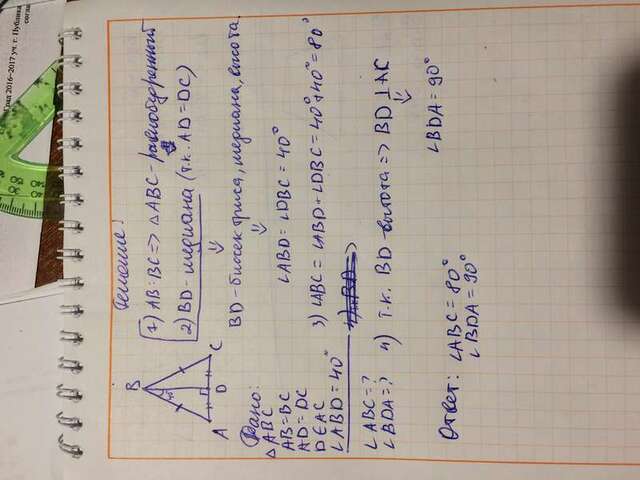 Град 2016-2017 уч. г. Публика
согла
Решение:
1) AB:BC => △ABC - равнобедренный
2) BD - медиана (т.к. AD = DC)
⇓
BD - биссектриса, медиана, высота.
⇓
∠ABD = ∠DBC = 40°
3) ∠ABC = ∠ABD + ∠DBC = 40°+40° = 80°
4) т.к. BD - высота => BD ⊥ AC
⇓
∠BDA = 90°
B
A D C
Дано:
△ABC
AB = BC
AD = DC
D ∈ AC
∠ABD = 40°
∠ABC = ?
∠BDA = ?
Ответ: ∠ABC = 80°
∠BDA = 90°